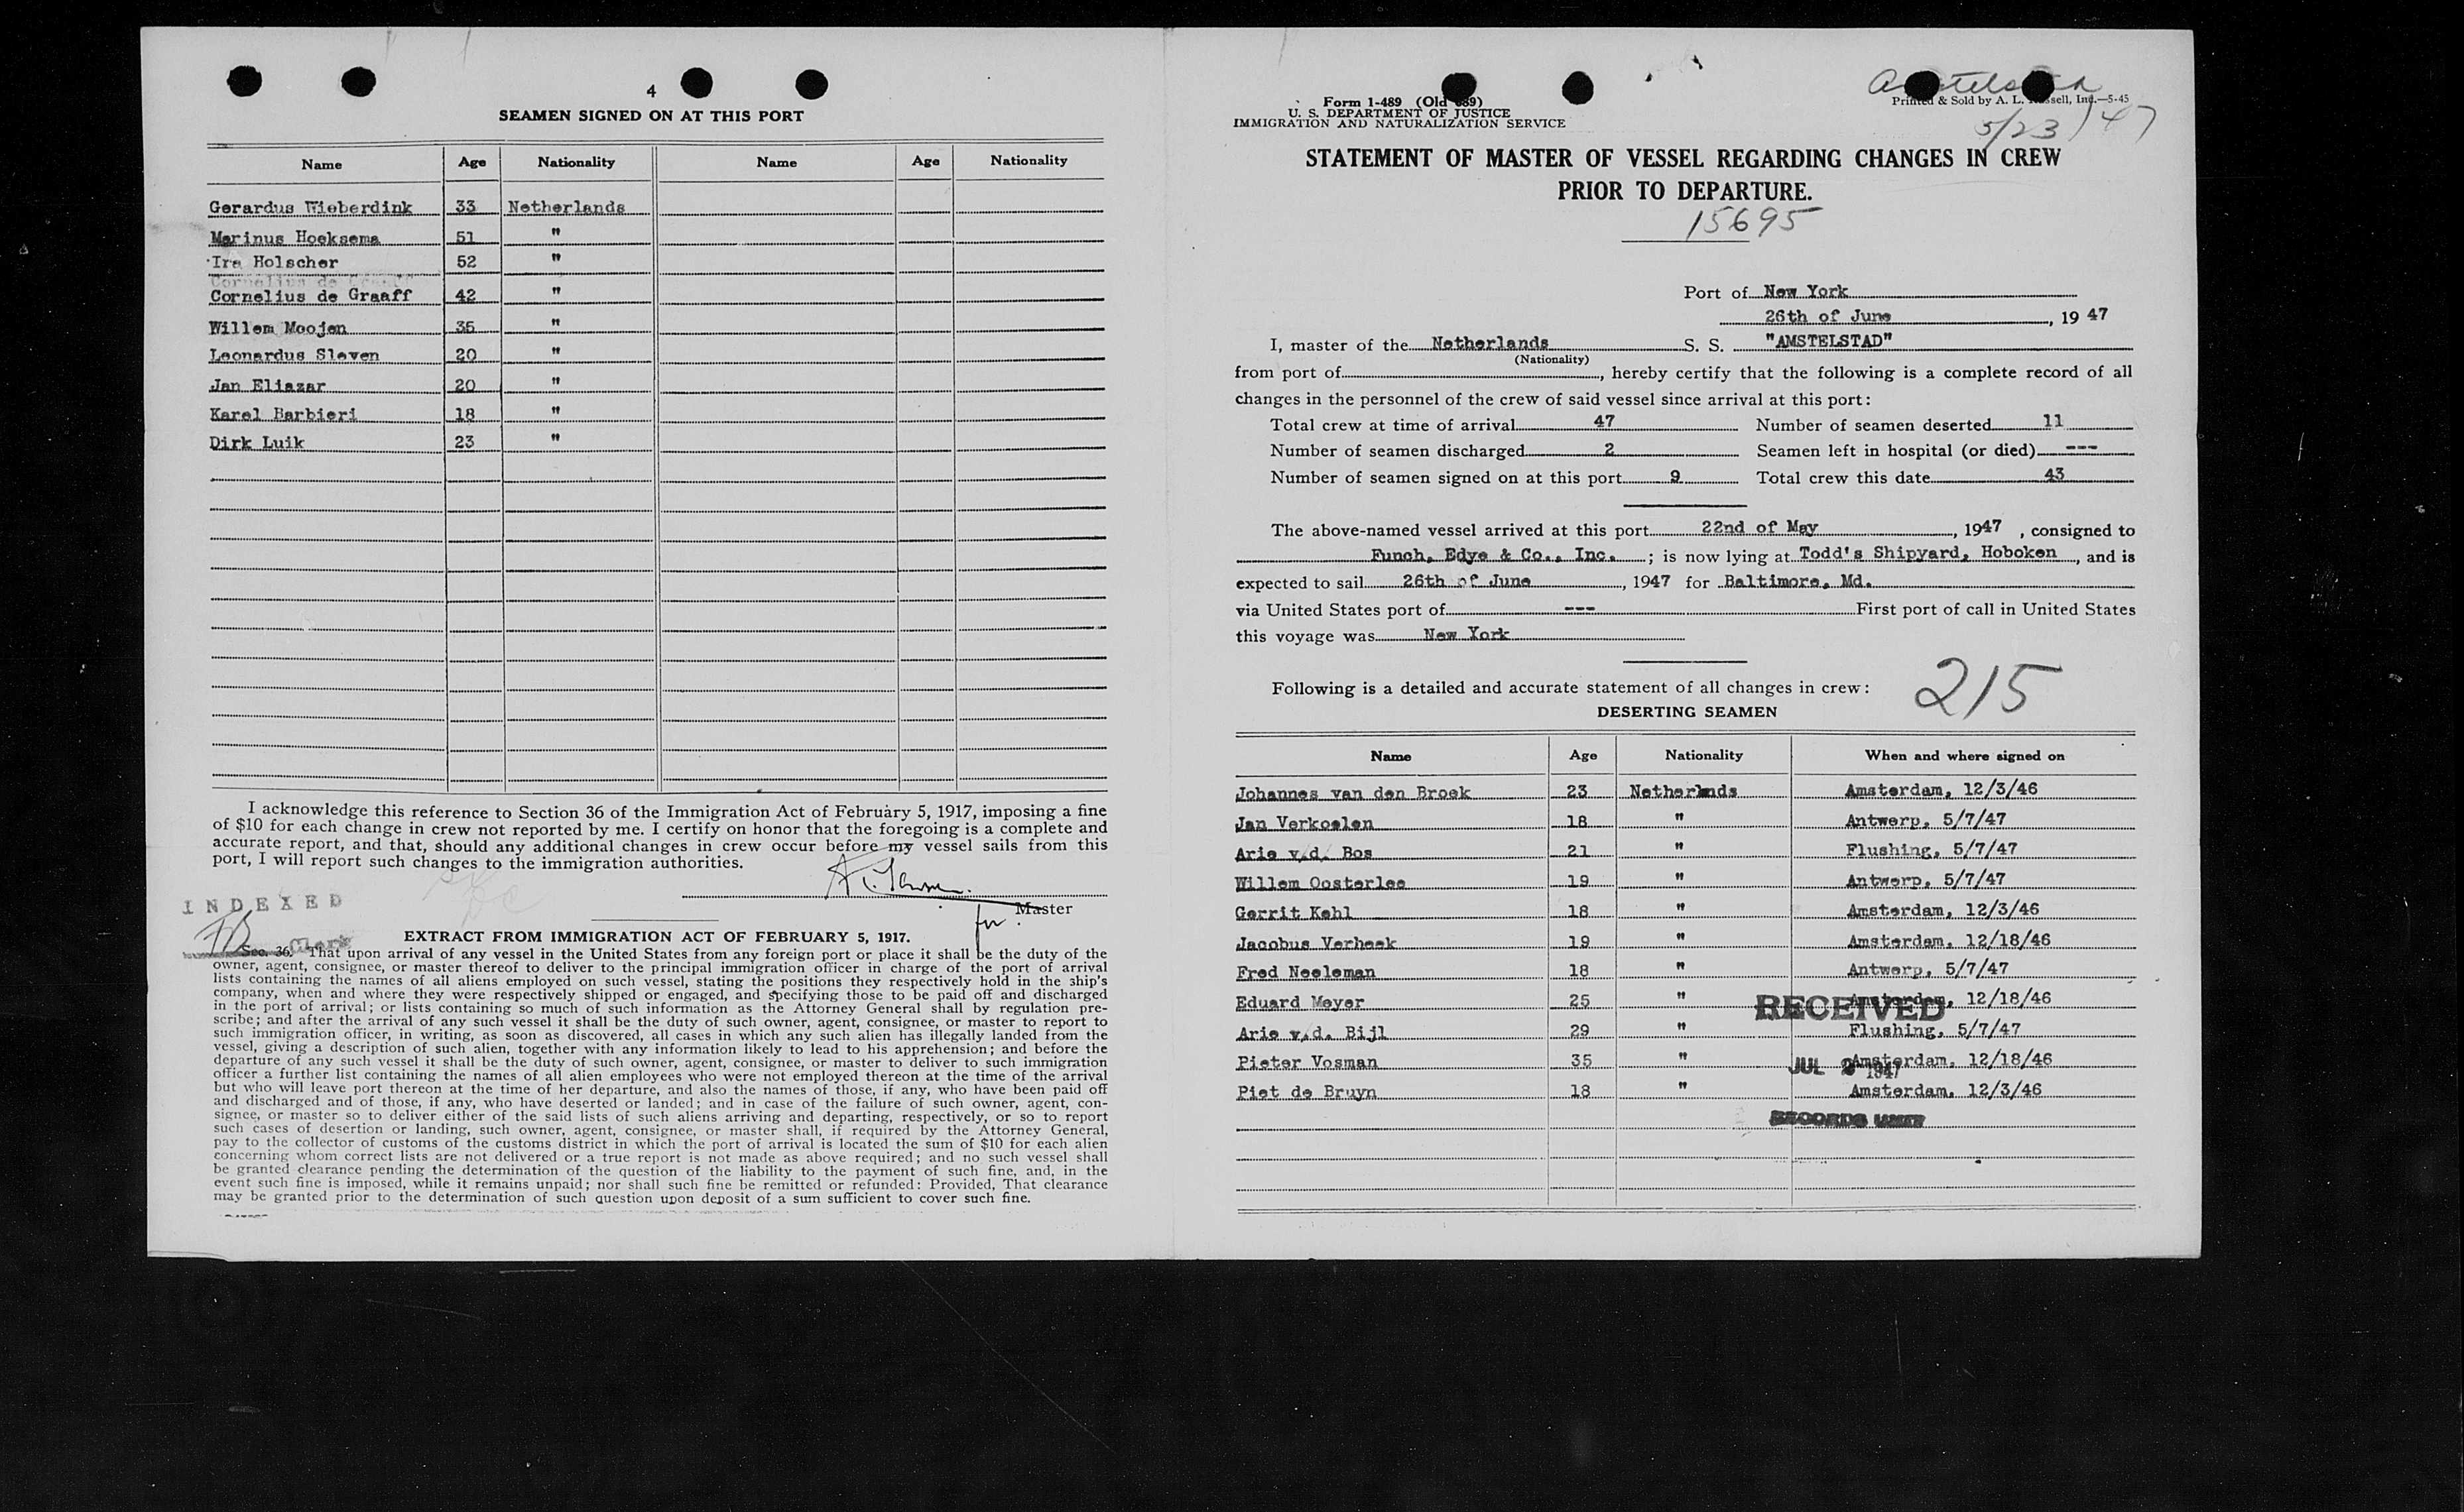 4
SEAMEN SIGNED ON AT THIS PORT
Name Age Nationality Name Age Nationality
Gerardus Wieberdink 33 Netherlands
Marinus Hoeksema 51 "
Ira Holscher 52 "
Cornelius de Graaff 42 "
Willem Moojen 35 "
Leonardus Slaven 20 "
Jan Eliazar 20 "
Karel Barbieri 18 "
Dirk Luik 23 "
I acknowledge this reference to Section 36 of the Immigration Act of February 5, 1917, imposing a fine
of $10 for each change in crew not reported by me. I certify on honor that the foregoing is a complete and
accurate report, and that, should any additional changes in crew occur before my vessel sails from this
port, I will report such changes to the immigration authorities.
INDEXED
for Master
Clerk
EXTRACT FROM IMMIGRATION ACT OF FEBRUARY 5, 1917.
Sec. 36. That upon arrival of any vessel in the United States from any foreign port or place it shall be the duty of the
owner, agent, consignee, or master thereof to deliver to the principal immigration officer in charge of the port of arrival
lists containing the names of all aliens employed on such vessel, stating the positions they respectively hold in the ship's
company, when and where they were respectively shipped or engaged, and specifying those to be paid off and discharged
in the port of arrival; or lists containing so much of such information as the Attorney General shall by regulation pre-
scribe; and after the arrival of any such vessel it shall be the duty of such owner, agent, consignee, or master to report to
such immigration officer, in writing, as soon as discovered, all cases in which any such alien has illegally landed from the
vessel, giving a description of such alien, together with any information likely to lead to his apprehension; and before the
departure of any such vessel it shall be the duty of such owner, agent, consignee, or master to deliver to such immigration
officer a further list containing the names of all alien employees who were not employed thereon at the time of the arrival
but who will leave port thereon at the time of her departure, and also the names of those, if any, who have been paid off
and discharged and of those, if any, who have deserted or landed; and in case of the failure of such owner, agent, con-
signee, or master so to deliver either of the said lists of such aliens arriving and departing, respectively, or so to report
such cases of desertion or landing, such owner, agent, consignee, or master shall, if required by the Attorney General,
pay to the collector of customs of the customs district in which the port of arrival is located the sum of $10 for each alien
concerning whom correct lists are not delivered or a true report is not made as above required; and no such vessel shall
be granted clearance pending the determination of the question of the liability to the payment of such fine, and, in the
event such fine is imposed, while it remains unpaid; nor shall such fine be remitted or refunded: Provided, That clearance
may be granted prior to the determination of such question upon deposit of a sum sufficient to cover such fine.
Form 1-489 (Old 689)
U. S. DEPARTMENT OF JUSTICE
IMMIGRATION AND NATURALIZATION SERVICE
Amstelstad
Printed & Sold by A. L. Russell, Inc.—5-45
5/23/47
STATEMENT OF MASTER OF VESSEL REGARDING CHANGES IN CREW
PRIOR TO DEPARTURE.
15695
Port of New York
26th of June, 19 47
I, master of the Netherlands S. S. "AMSTELSTAD"
(Nationality)
from port of , hereby certify that the following is a complete record of all
changes in the personnel of the crew of said vessel since arrival at this port:
Total crew at time of arrival 47 Number of seamen deserted 11
Number of seamen discharged 2 Seamen left in hospital (or died) ---
Number of seamen signed on at this port 9 Total crew this date 43
The above-named vessel arrived at this port 22nd of May, 1947, consigned to
Funch, Edye & Co., Inc. ; is now lying at Todd's Shipyard, Hoboken, and is
expected to sail 26th of June, 1947 for Baltimore, Md.
via United States port of --- First port of call in United States
this voyage was New York
Following is a detailed and accurate statement of all changes in crew:
215
DESERTING SEAMEN
Name Age Nationality When and where signed on
Johannes van den Broek 23 Netherlnds Amsterdam, 12/3/46
Jan Verkoelen 18 " Antwerp, 5/7/47
Arie v.d. Bos 21 " Flushing, 5/7/47
Willem Oosterlee 19 " Antwerp, 5/7/47
Gerrit Kehl 18 " Amsterdam, 12/3/46
Jacobus Verheek 19 " Amsterdam, 12/18/46
Fred Neeleman 18 " Antwerp, 5/7/47
Eduard Meyer 25 " Amsterdam, 12/18/46
RECEIVED
Arie v.d. Bijl 29 " Flushing, 5/7/47
Pieter Vosman 35 " Amsterdam, 12/18/46
JUL 2 1947
Piet de Bruyn 18 " Amsterdam, 12/3/46
RECORDS UNIT